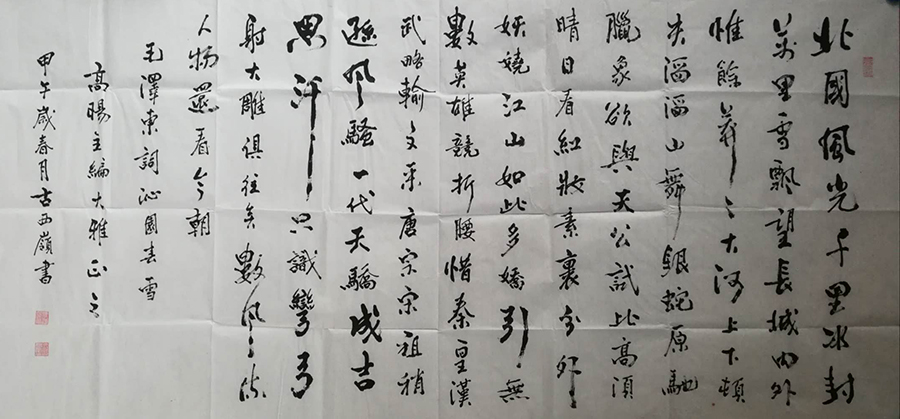 北國風光千里冰封
萬里雪飄望長城內外
惟餘莽々大河上下頓
失滔滔山舞銀蛇原馳
臘象欲與天公試比高須
晴日看紅妝素裹分外
妖嬈江山如此多嬌引無
數英雄競折腰惜秦皇漢
武略輸文采唐宗宋祖稍
遜風騷一代天驕成吉
思汗只識彎弓
射大雕俱往矣數風流
人物還看今朝
毛澤東詞沁園春雪
高暘主編大雅正之
甲午歲春月古西嶺書